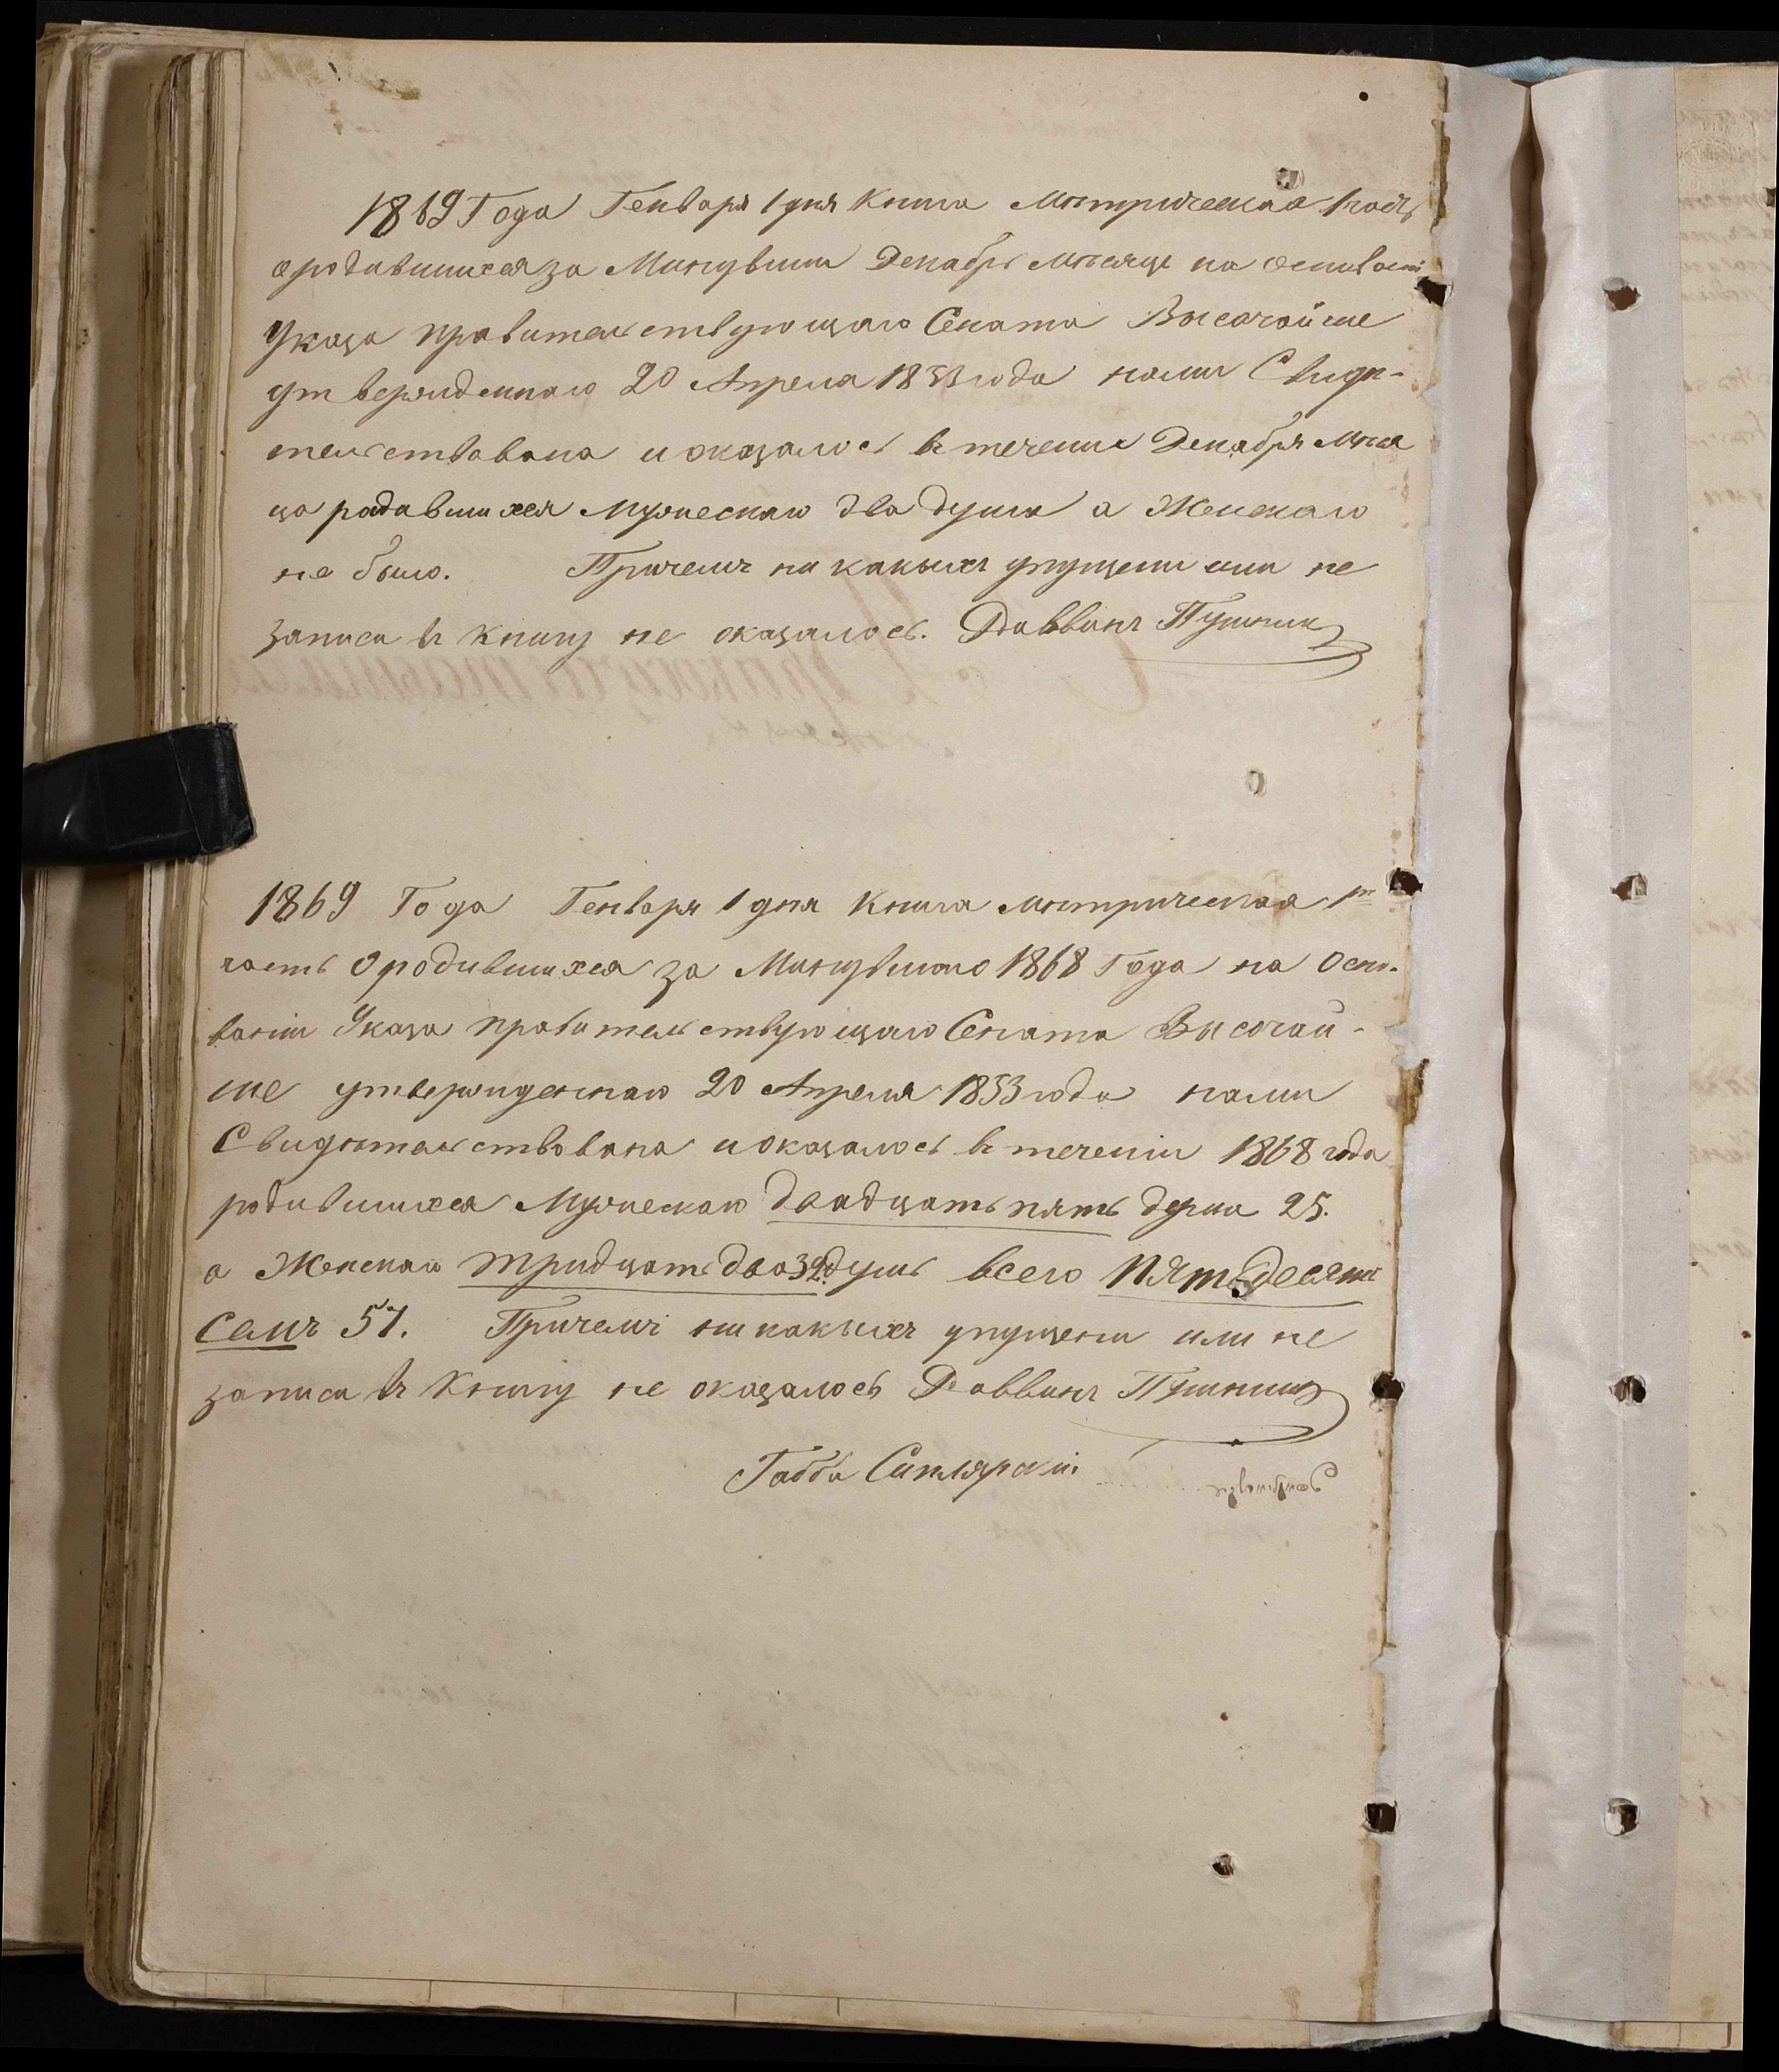 1869 Года Генваря 1 дня Книга Метрическая 1 часть
о родившихся за Минувши Декабрь месяць на основани
Указа правительствующаго Сената Высочайше
утвержденнаго 20 Апреля 1853 года нами Свидѣ-
тельствована и оказалось въ течении Декабря Меся
ца родавшихся Мужескаго два душа а Женскаго
не было. Причемъ ни какыхъ упущени или не
записи въ книгу не оказалось. Раввинъ Пушкин
1869 Года Генваря 1 дня Книга метрическая 1я
часть О родившихся за Минувшаго 1868 Года на Осно-
ваніи Указа правительствующаго Сената Высочай-
ше утвержденнаго 20 Апреля 1853 года нами
Свидѣтельствована и оказалось въ теченіи 1868 года
родившихся Мужескаго двадцать пять душа 25.
а Женскаго тридцать два 32. душъ всего пятьдесять
семъ 57. Причемъ ни какыхъ упущени или не
записи въ Книгу не оказалось Раввинъ Пушкин
Габбе